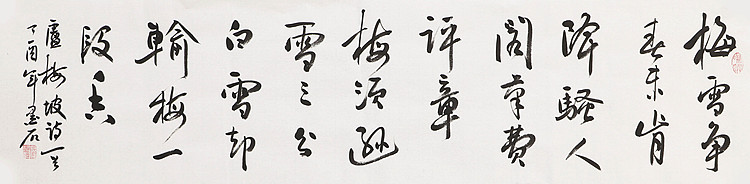 梅雪争
春未肯
降骚人
阁笔费
评章
梅须逊
雪三分
白雪却
输梅一
段香
卢梅坡诗一首
丁酉年墨石